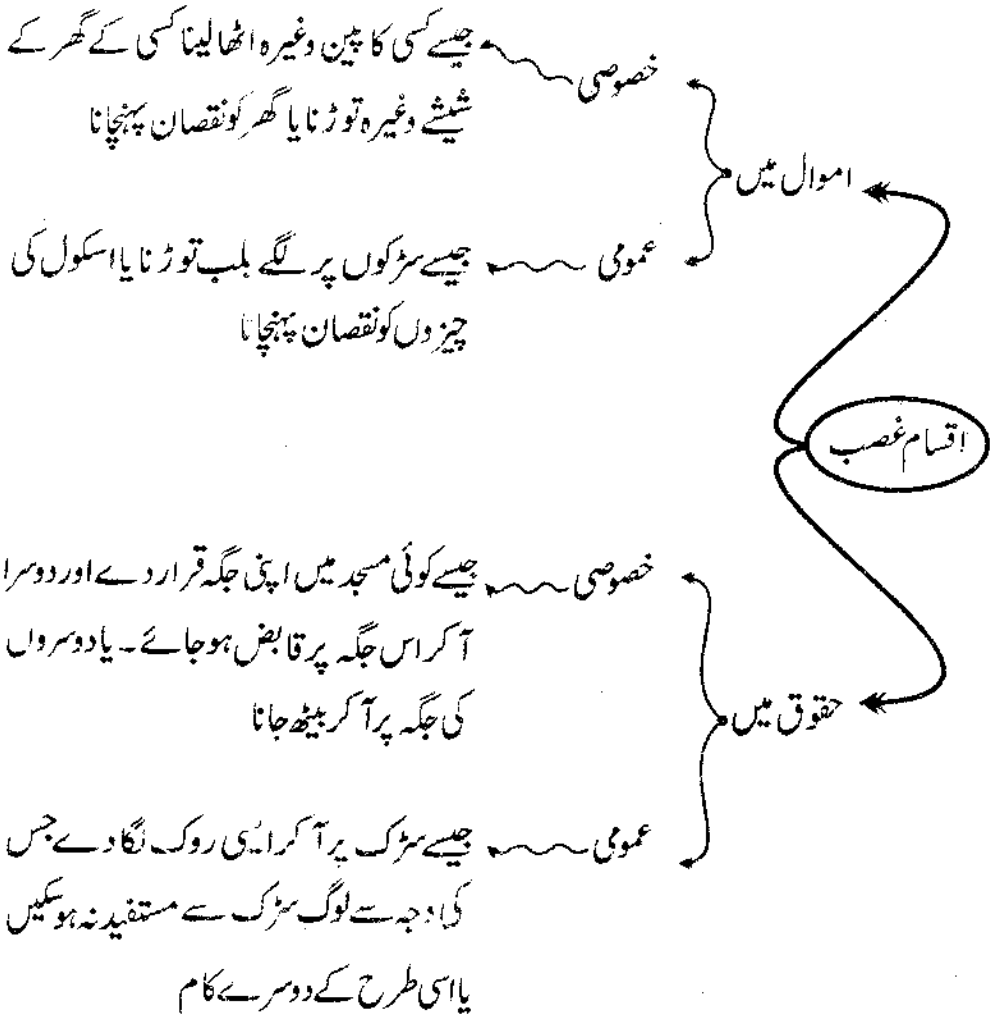 اقسام غصب
اموال میں
خصوصی
جیسے کسی کا پین وغیرہ اٹھا لینا کسی کے گھر کے
شیشے وغیرہ توڑنا یا گھر کو نقصان پہنچانا
عمومی
جیسے سڑکوں پر لگے بلب توڑنا یا اسکول کی
چیزوں کو نقصان پہنچانا
حقوق میں
خصوصی
جیسے کوئی مسجد میں اپنی جگہ قرار دے اور دوسرا
آ کر اس جگہ پر قابض ہو جائے۔ یا دوسروں
کی جگہ پر آ کر بیٹھ جانا
عمومی
جیسے سڑک پر آ کر ایسی روک لگا دے جس
کی وجہ سے لوگ سڑک سے مستفید نہ ہو سکیں
یا اسی طرح کے دوسرے کام